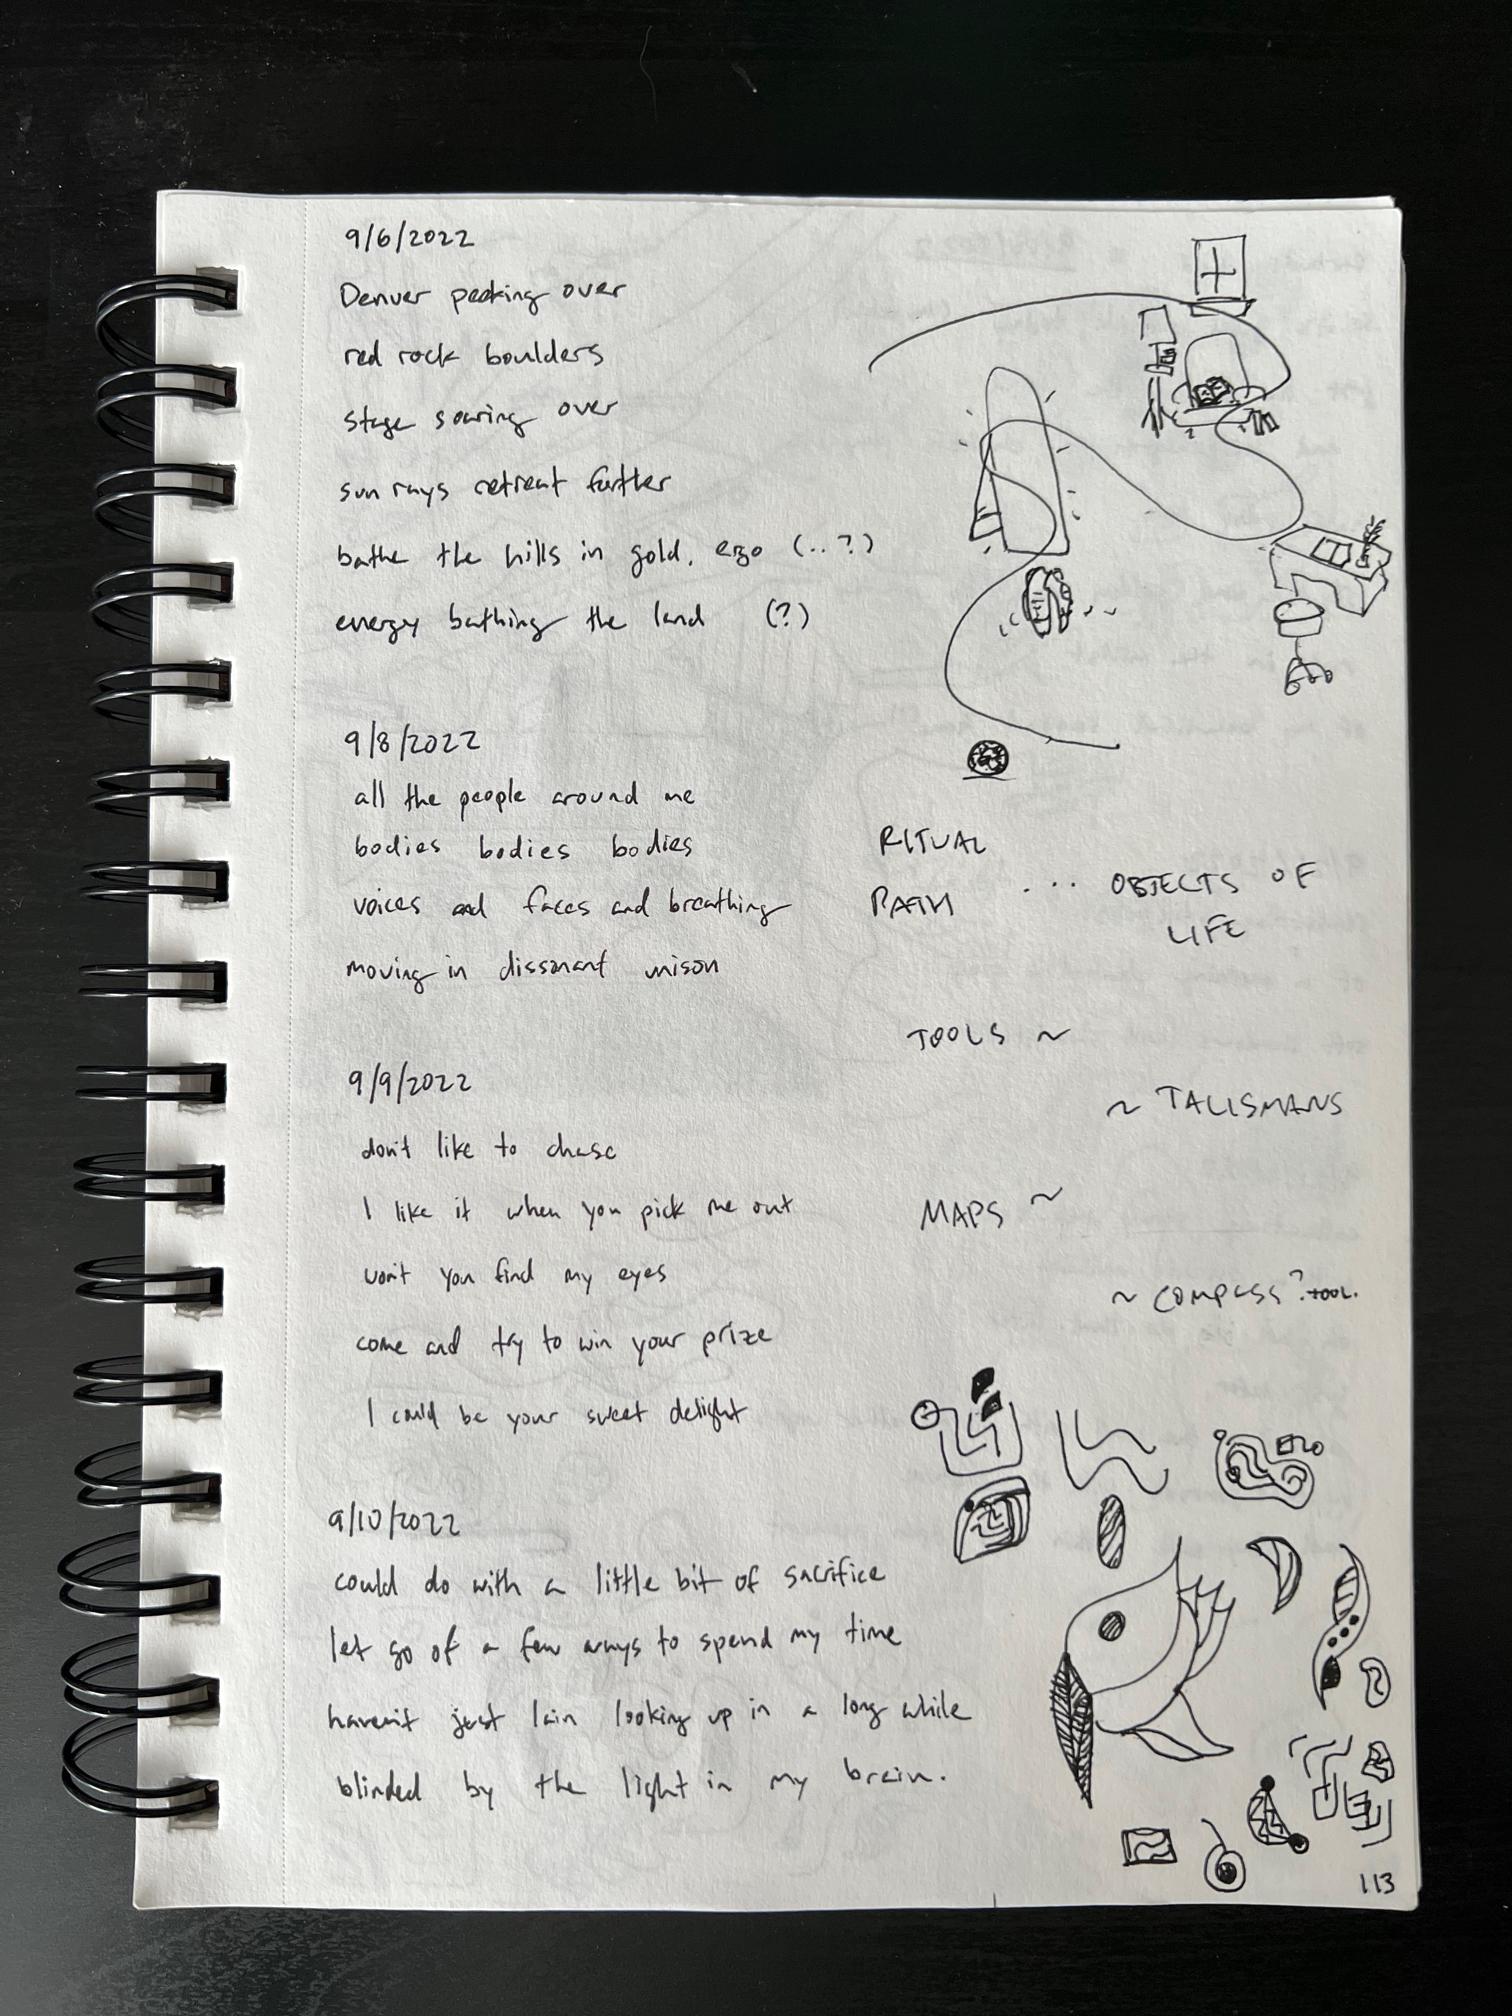 9/6/2022
Denver peeking over
red rock boulders
stage soaring over
sun rays retreat further
bathe the hills in gold, ergo (..?)
energy bathing the land (?)
9/8/2022
all the people around me
bodies bodies bodies
voices and faces and breathing
moving in dissonant unison
9/9/2022
don't like to chase
I like it when you pick me out
won't you find my eyes
come and try to win your prize
I could be your sweet delight
9/10/2022
could do with a little bit of sacrifice
let go of a few ways to spend my time
haven't just lain looking up in a long while
blinded by the light in my brain.
RITUAL
PATH ... OBJECTS OF
LIFE
TOOLS ~
~ TALISMANS
MAPS ~
~ COMPASS? TOOL.
113